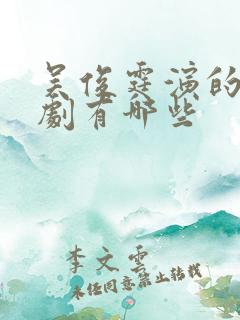 吴俊霆演的
劇有哪些
李文雲
未经同意禁止转载